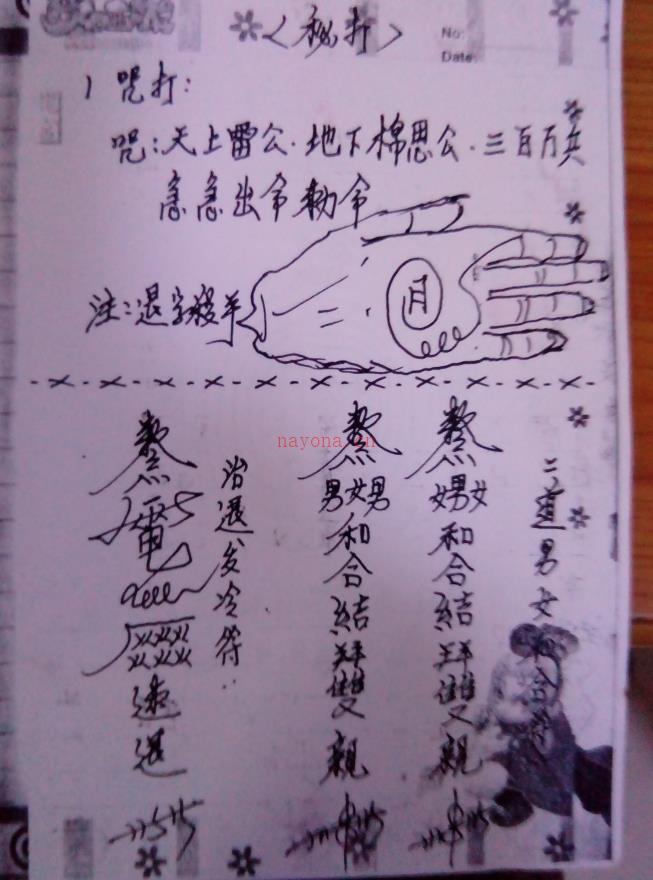 〈秘打〉
No:
Date:
1 咒打:
咒:天上雷公.地下棉思公.三百万兵
急急出令勅令
注:退字
月
二道男女和合符
女男女
和合結拜雙親
男女男
和合結拜雙親
治退发冷符
速退
nayona.cn